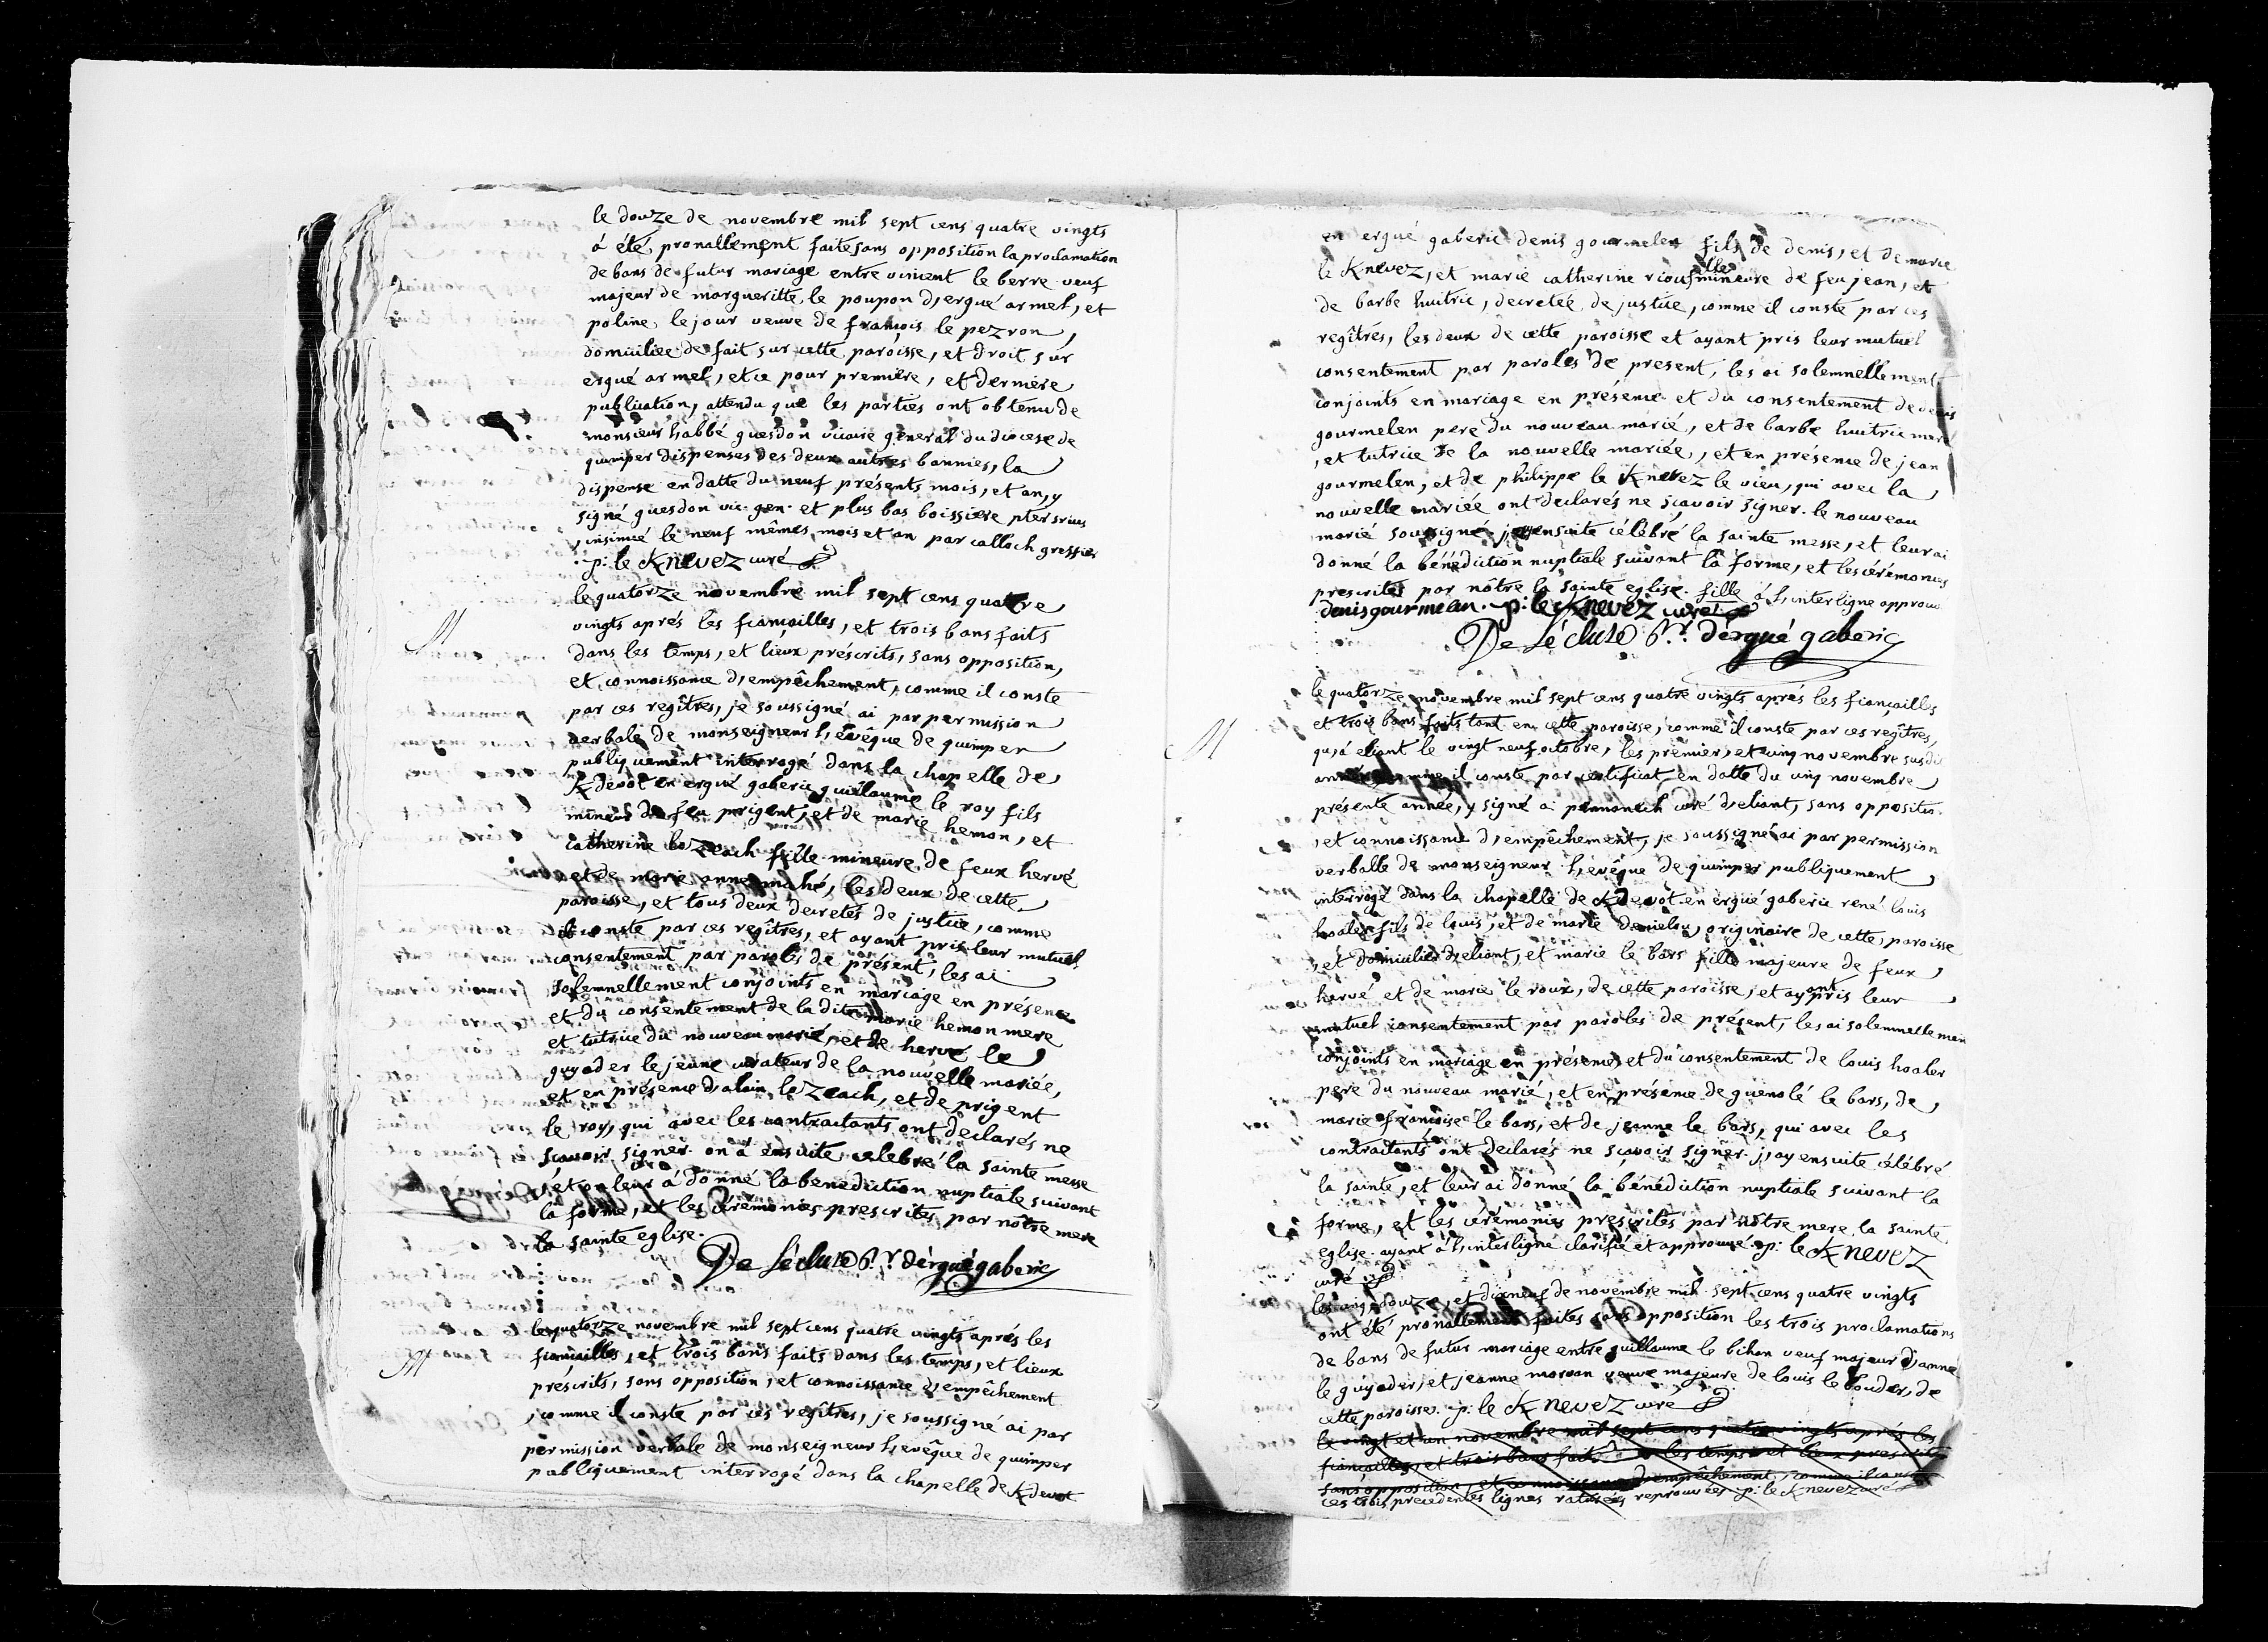 le douze de novembre mil sept cens quatre vingts
à été pronallement faite sans opposition la proclamation
de bans de futur mariage entre vincent le berre veuf
majeur de margueritte le poupon d'ergué armel, et
poline le jour veuve de françois le pezron,
domiciliée de fait sur cette paroisse, et droit sur
ergué armel, et ce pour premiere, et derniere
publication, attendu que les parties ont obtenu de
monsieur l'abbé guesdon vicaire general du diocese de
quimper dispenses des deux autres bannies, la
dispense en datte du neuf présents mois, et an, y
signé guesdon vic. gen. et plus bas boissiere
, insinué le neuf mêmes mois et an par calloch greffier
p: le Knevez curé
le quatorze novembre mil sept cens quattre
M
vingts aprés les fiançailles, et trois bans faits
dans les temps, et lieux préscrits, sans opposition,
et connoissance d'empêchement, comme il conste
par ces regîtres, je soussigné ai par permission
verbale de monseigneur l'evêque de quimper
publiquement interrogé dans la chapelle de
Kdevot en ergué gaberic guillaume le roy fils
mineur de feu prigent, et de marie hemon, et
catherine lozeach fille mineure de feux hervé
et de marie anne mahé, les deux de cette
paroisse, et tous deux decretés de justice, comme
il conste par ces regîtres, et ayant pris leur mutuel
consentement par paroles de présent, les ai
solemnellement conjoints en mariage en présence
et du consentement de la dite marie hemon mere
et tutrice du nouveau marié, et de hervé le
guyader le jeune curateur de la nouvelle mariée,
et en présence d'alain lozeach, et de prigent
le roy, qui avec les contractants ont declarés ne
sçavoir signer. on à ensuite celebré la sainte messe
, et on leur à donné la benediction nuptiale suivant
la forme, et les cérémonies prescrites par nôtre mere
la sainte eglise.
De Lécluse P.r d'ergué gaberic
le quatorze novembre mil sept cens quatre vingts aprés les
M
fiançailles, et trois bans faits dans les temps, et lieux
préscrits, sans opposition, et connoissance d'empêchement
, comme il conste par ces regîtres, je soussigné ai par
permission verbale de monseigneur l'evêque de quimper
publiquement interrogé dans la chapelle de Kdevot
en ergué gaberic denis gourmelen fils de denis, et de marie
lle
le Knevez, et marie catherine riou mineure de feu jean, et
de barbe huitric, decretée de justice, comme il conste par ces
regîtres, les deux de cette paroisse et ayant pris leur mutuel
consentement par paroles de present, les ai solemnellement
conjoints en mariage en présence et du consentement de denis
gourmelen pere du nouveau marié, et de barbe huitric mere
, et tutrice de la nouvelle mariée, et en presence de jean
gourmelen, et de philippe le Knevez le vieu, qui avec la
nouvelle mariée ont declarés ne sçavoir signer. le nouveau
marié soussigné. j'ai ensuite célébré la sainte messe, et leur ai
donné la bénédiction nuptiale suivant la forme, et les cérémonies
prescrites par nôtre la sainte eglise. fille à l'interligne approuvé
denis gourmelen p: le Knevez curé
De Lécluse P.r d'ergué gaberic
le quatorze novembre mil sept cens quatre vingts aprés les fiançailles
et trois bans faits tant en cette paroisse, comme il conste par ces regîtres,
M
qu'à eliant le vingt neuf octobre, les premier, et cinq novembre susdite
année, comme il conste par certificat en datte du cinq novembre
présente année, y signé a pennanech curé d'eliant, sans opposition
, et connoissance d'empêchement, je soussigné ai par permission
verballe de monseigneur l'evêque de quimper publiquement
interrogé dans la chapelle de Kdevot en ergué gaberic rené louis
hoaler fils de louis, et de marie denielou, originaire de cette paroisse
, et domicilié d'eliant, et marie le bars fille majeure de feux
hervé et de marie le roux, de cette paroisse, et ayant pris leur
mutuel consentement par paroles de présent, les ai solemnellemen
conjoints en mariage en présence, et du consentement de louis hoaler
pere du nouveau marié, et en présence de guenolé le bars, de
marie françoise le bars, et de jeanne le bars, qui avec les
contraitants ont declarés ne sçavoir signer. j'ay ensuite célébré
la sainte, et leur ai donné la bénédiction nuptiale suivant la
forme, et les cérémonies prescrites par nôtre mere la sainte
eglise. ayant à l'interligne clarifié et approuvé. p: le Knevez
curé
les cinq, douze, et dixneuf de novembre mil sept cens quatre vingts
ont été pronallement faites sans opposition les trois proclamations
de bans de futur mariage entre guillaume le bihan veuf majeur d'anne
le guyader, et jeanne morvan veuve majeure de louis le bouder, de
cette paroisse. p: le Knevez curé
le vingt et un novembre mil sept cens quatre vingts aprés les
fiançailles, et trois bans faits dans les temps, et lieux prescrits
sans opposition, et connoissance d'empêchement, comme il conste
ces trois précedentes lignes raturées reprouvées p: le Knevez curé